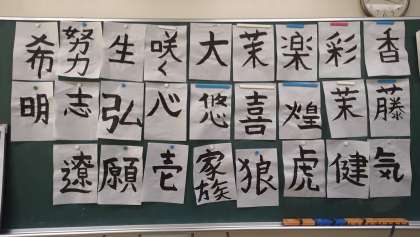 希 努力 生 咲く 大 茉 楽 彩 香
明 志 弘 心 悠 喜 煌 茉 藤
遼 願 壱 家族 狼 虎 健 気